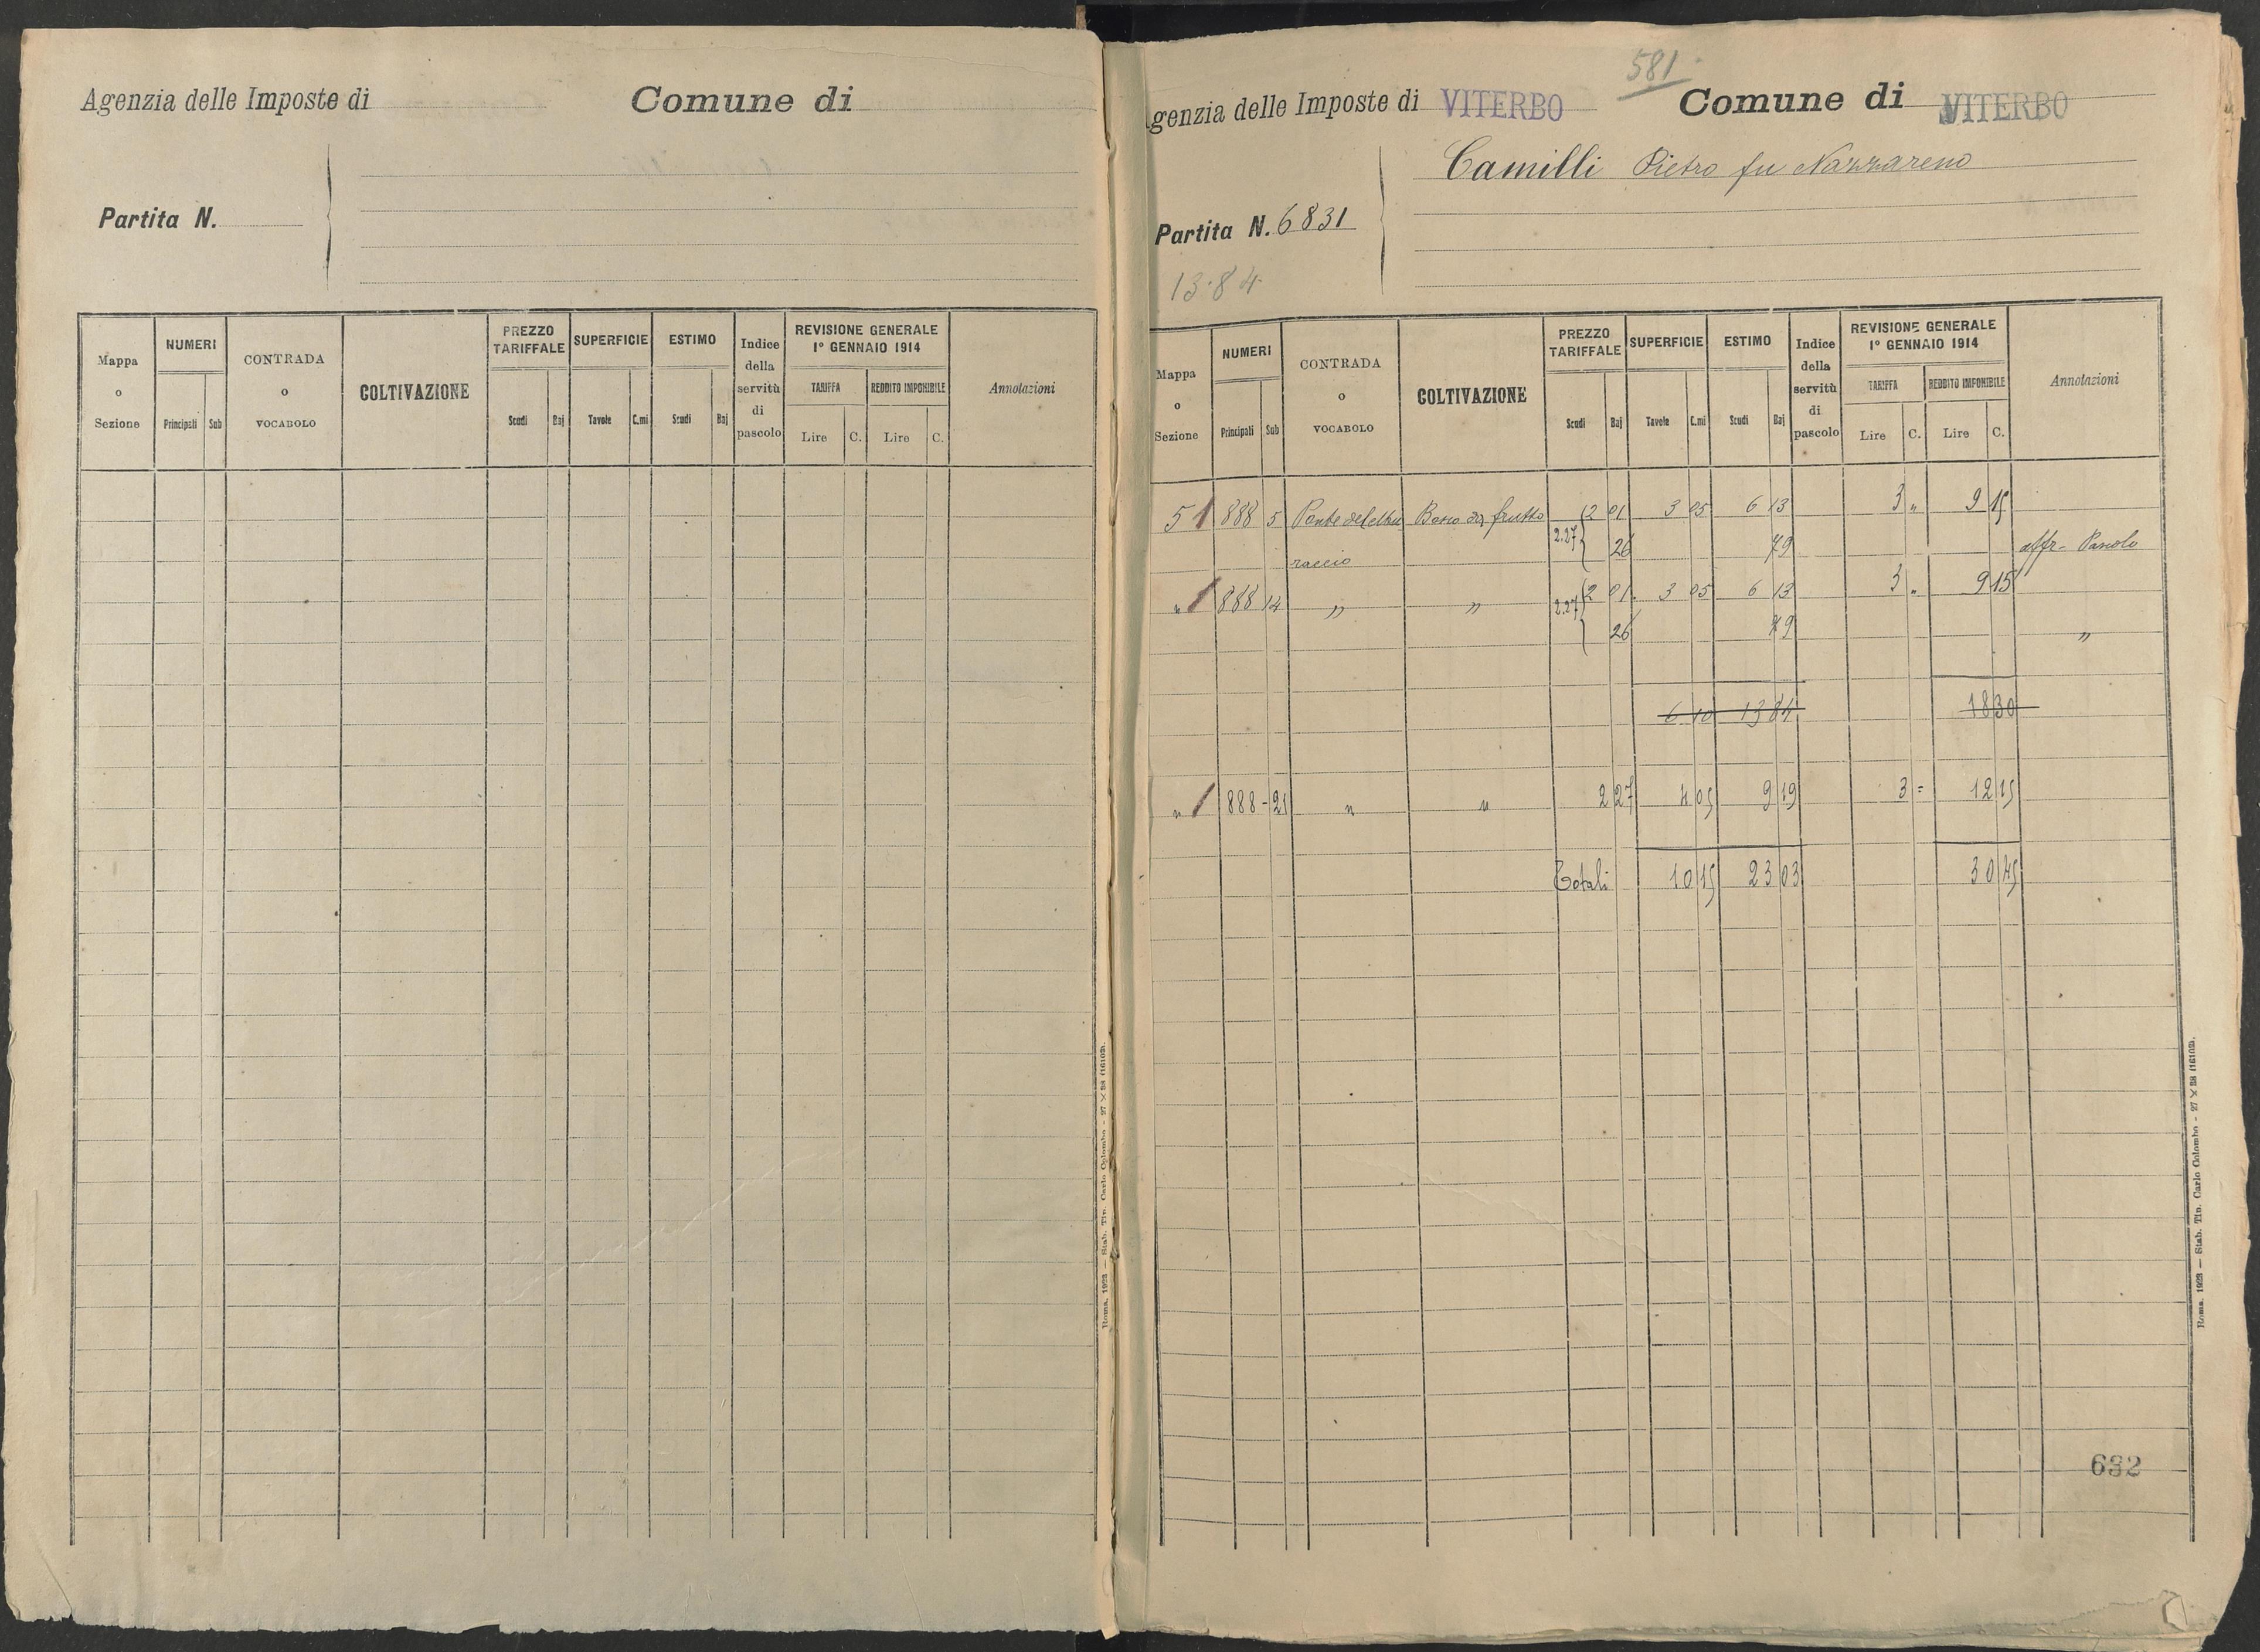 Agenzia delle Imposte di
Comune di
Partita N.
Mappa o Sezione
NUMERI
Principali
Sub
CONTRADA o VOCABOLO
COLTIVAZIONE
PREZZO TARIFFALE
Scudi
Baj
SUPERFICIE
Tavole
C.mi
ESTIMO
Scudi
Baj
Indice della servitù di pascolo
REVISIONE GENERALE
1° GENNAIO 1914
TARIFFA
REDDITO IMPONIBILE
Lire
C.
Lire
C.
Annotazioni
Roma, 1923 — Stab. Tip. Carlo Colombo - 27 × 38 (16102).
581
genzia delle Imposte di VITERBO
Comune di VITERBO
Camilli Pietro fu Nazzareno
Partita N. 6831
13.84
Mappa o Sezione
NUMERI
Principali
Sub
CONTRADA o VOCABOLO
COLTIVAZIONE
PREZZO TARIFFALE
Scudi
Baj
SUPERFICIE
Tavole
C.mi
ESTIMO
Scudi
Baj
Indice della servitù di pascolo
REVISIONE GENERALE
1° GENNAIO 1914
TARIFFA
REDDITO IMPONIBILE
Lire
C.
Lire
C.
Annotazioni
51 888 5 da frutto 2 01 3 05 6 13 3 " 9 15
raccio 2.27 26 79 affr-
" 1 888 14 " " 2.27 2 01 3 05 6 13 3 " 9 15
26 79 "
6 10 13 84 18 30
" 1 888 - 21 " " 2 27 4 05 9 19 3 = 12 15
Totali 10 15 23 03 30 45
632
Roma, 1923 — Stab. Tip. Carlo Colombo - 27 × 38 (16102).